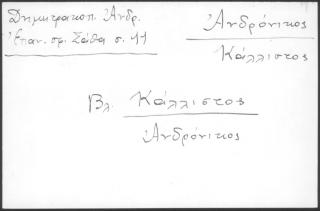 Δημητρακοπ. Ἀνδρ.
Ἐπαν. σφ. Σάθα σ. 11
Ἀνδρόνικος
Κάλλιστος
Βλ. Κάλλιστος
Ἀνδρόνικος